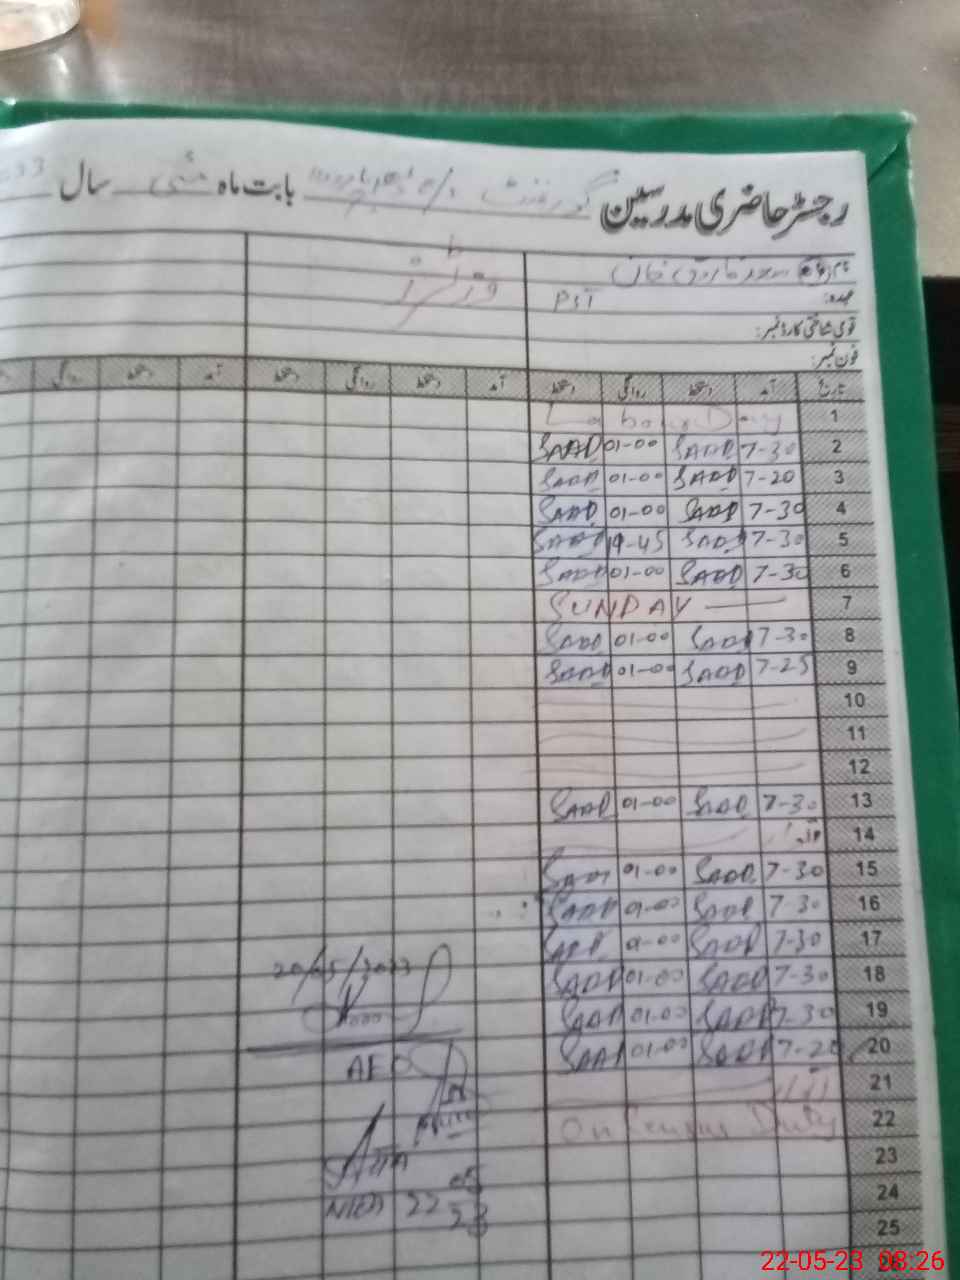 رجسٹر حاضری مدرسین گورنمنٹ بابت ماہ مئی سال
نام سعد فاروق خان
عہدہ: PST
قومی شناختی کارڈ نمبر:
فون نمبر:
تاریخ آمد دستخط روانگی دستخط آمد دستخط روانگی دستخط آمد دستخط روانگی
1 Labour Day
2 7-30 SAAD 01-00 SAAD
3 7-20 SAAD 01-00 SAAD
4 7-30 SAAD 01-00 SAAD
5 7-30 SAAD SAAD
6 7-30 SAAD 01-00 SAAD
7 SUNDAY
8 7-30 SAAD 01-00 SAAD
9 7-25 SAAD 01-00 SAAD
10
11
12
13 7-30 SAAD 01-00 SAAD
14 اتوار
15 7-30 SAAD 01-00 SAAD
16 7-30 SAAD 01-00 SAAD
17 7-30 SAAD 01-00 SAAD
18 7-30 SAAD 01-00 SAAD
19 7-30 SAAD 01-00 SAAD
20 7-20 SAAD 01-00 SAAD
21 اتوار
22 On Census Duty
23
24
25
20/05/2023
AEO
22 05 23
22-05-23 08:26